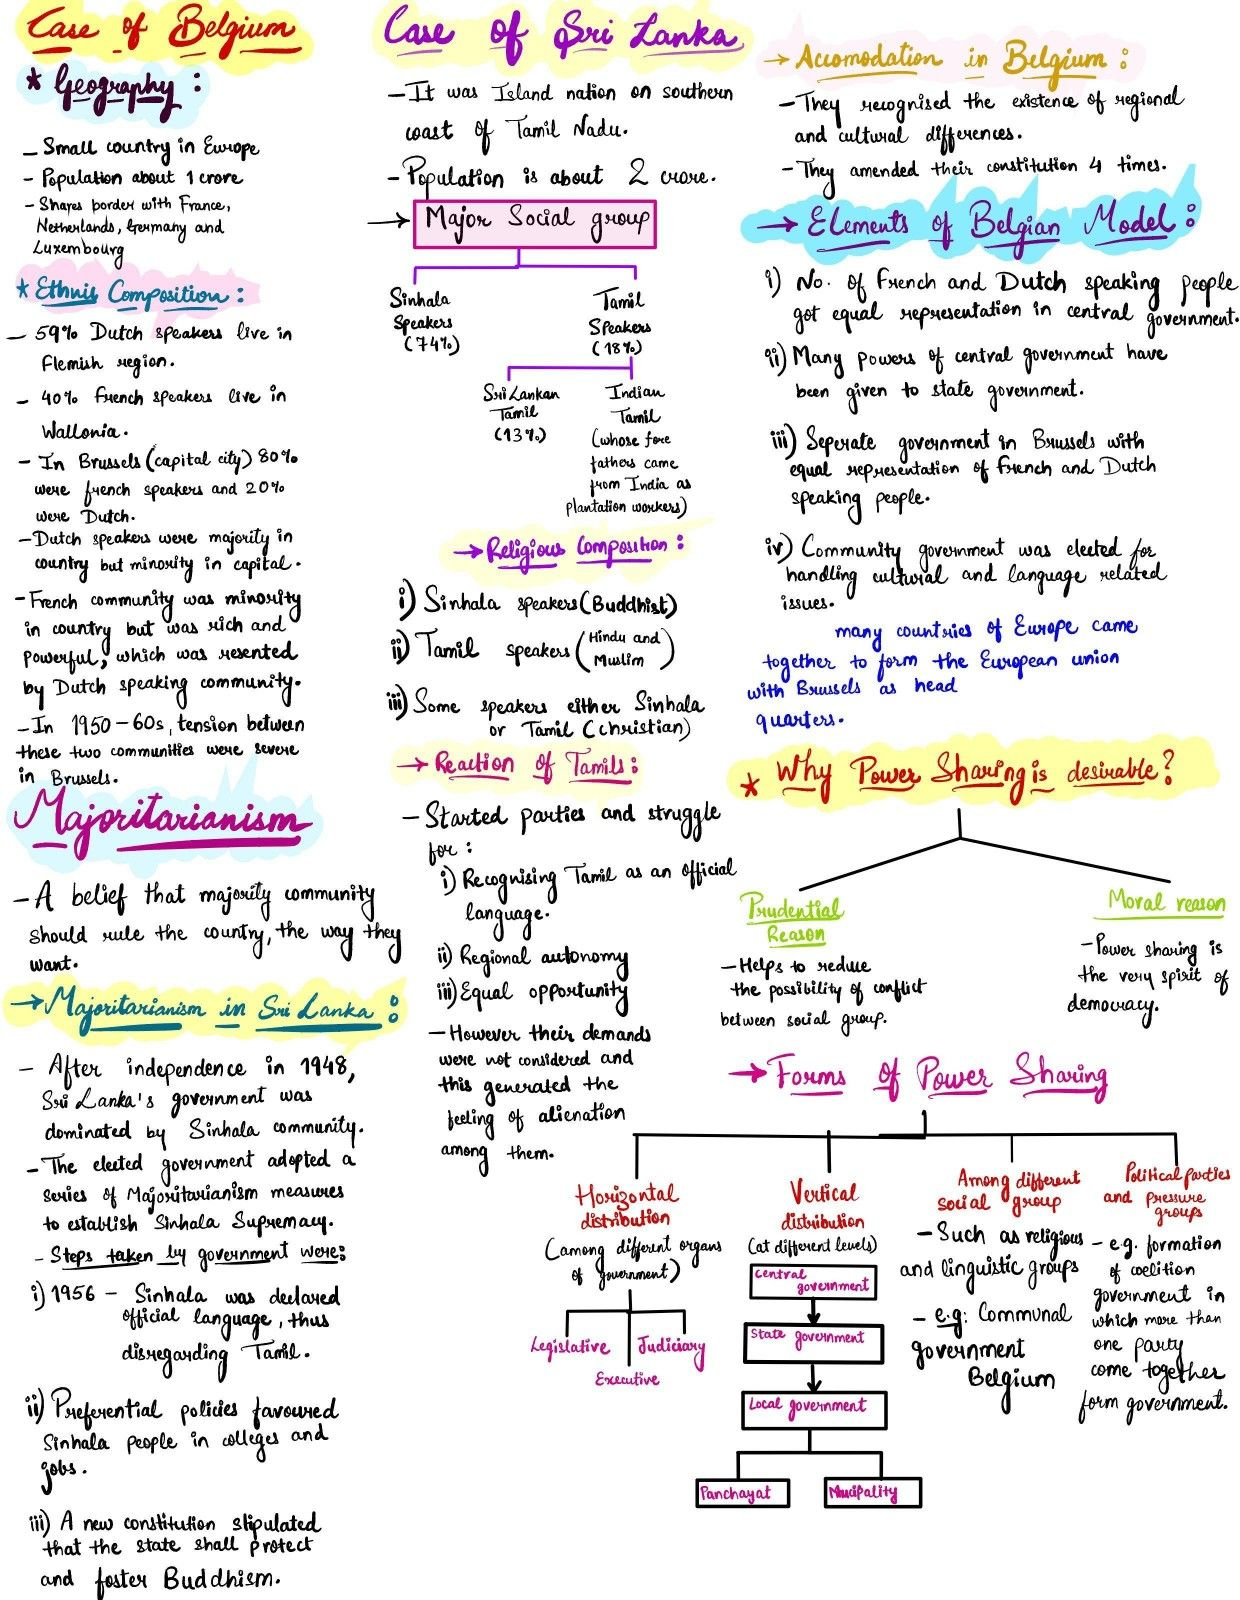 Case of Belgium
* Geography :
- Small country in Europe
- Population about 1 crore
- Shares border with France,
Netherlands, Germany and
Luxembourg
* Ethnic Composition :
- 59% Dutch speakers live in
Flemish region.
- 40% French speakers live in
Wallonia.
- In Brussels (capital city) 80%
were french speakers and 20%
were Dutch.
- Dutch speakers were majority in
country but minority in capital.
- French community was minority
in country but was rich and
powerful, which was resented
by Dutch speaking community.
- In 1950-60s, tension between
these two communities were severe
in Brussels.
Majoritarianism
- A belief that majority community
should rule the country, the way they
want.
→ Majoritarianism in Sri Lanka :
- After independence in 1948,
Sri Lanka's government was
dominated by Sinhala community.
- The elected government adopted a
series of Majoritarianism measures
to establish Sinhala Supremacy.
- Steps taken by government were:
i) 1956 - Sinhala was declared
official language, thus
disregarding Tamil.
ii) Preferential policies favoured
Sinhala people in colleges and
jobs.
iii) A new constitution stipulated
that the state shall protect
and foster Buddhism.
Case of Sri Lanka
- It was Island nation on southern
coast of Tamil Nadu.
- Population is about 2 crore.
→ Major Social group
Sinhala
Speakers
(74%)
Tamil
Speakers
(18%)
Sri Lankan
Tamil
(13%)
Indian
Tamil
(whose fore
fathers came
from India as
plantation workers)
→ Religious Composition :
i) Sinhala speakers (Buddhist)
ii) Tamil speakers (Hindu and
Muslim)
iii) Some speakers either Sinhala
or Tamil (christian)
→ Reaction of Tamils :
- Started parties and struggle
for :
i) Recognising Tamil as an official
language.
ii) Regional autonomy
iii) Equal opportunity
- However their demands
were not considered and
this generated the
feeling of alienation
among them.
→ Accomodation in Belgium :
- They recognised the existence of regional
and cultural differences.
- They amended their constitution 4 times.
→ Elements of Belgian Model :
i) No. of French and Dutch speaking people
got equal representation in central government.
ii) Many powers of central government have
been given to state government.
iii) Seperate government in Brussels with
equal representation of French and Dutch
speaking people.
iv) Community government was elected for
handling cultural and language related
issues.
many countries of Europe came
together to form the European union
with Brussels as head
quarters.
* Why Power Sharing is desirable?
Prudential
Reason
- Helps to reduce
the possibility of conflict
between social group.
Moral reason
- Power sharing is
the very spirit of
democracy.
→ Forms of Power Sharing
Horizontal
distribution
(among different organs
of government)
Legislative
Executive
Judiciary
Vertical
distribution
(at different levels)
Central
government
State government
Local government
Panchayat
Muncipality
Among different
social group
- Such as religious
and linguistic groups
- e.g: Communal
government
Belgium
Political parties
and pressure
groups
- e.g. formation
of coelition
government in
which more than
one party
come together
form government.